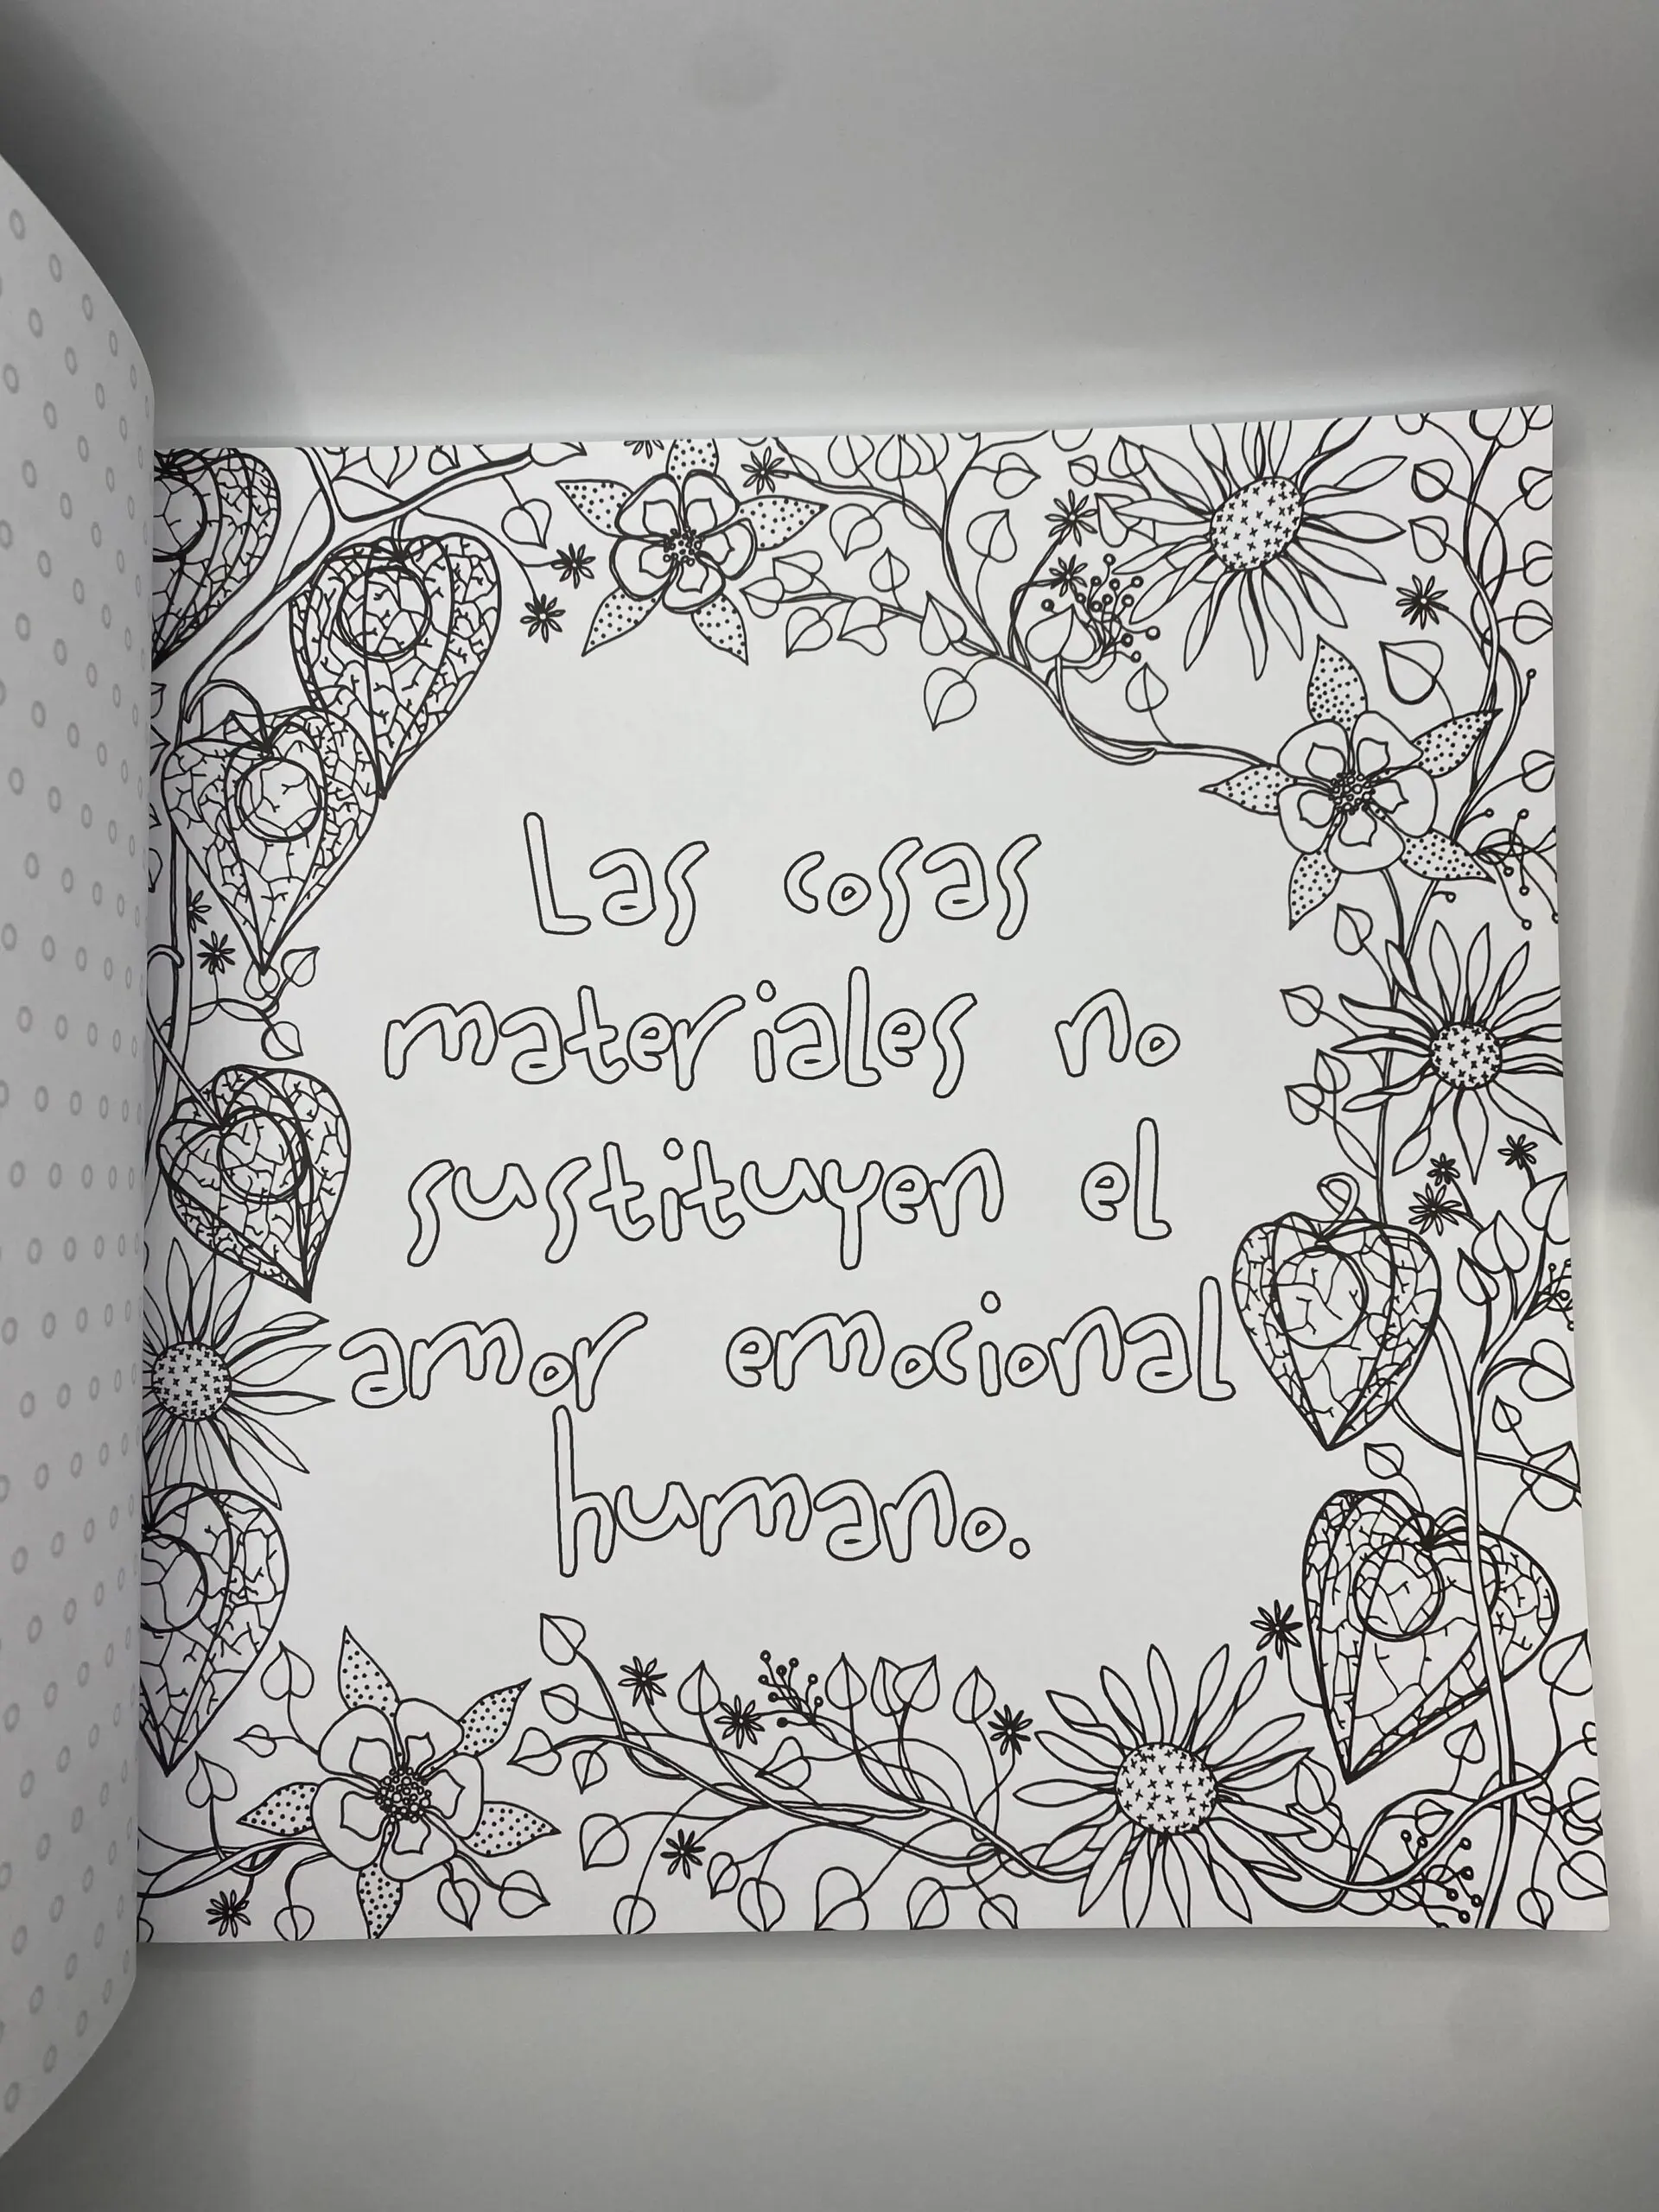 Las cosas
materiales no
sustituyen el
amor emocional
humano.